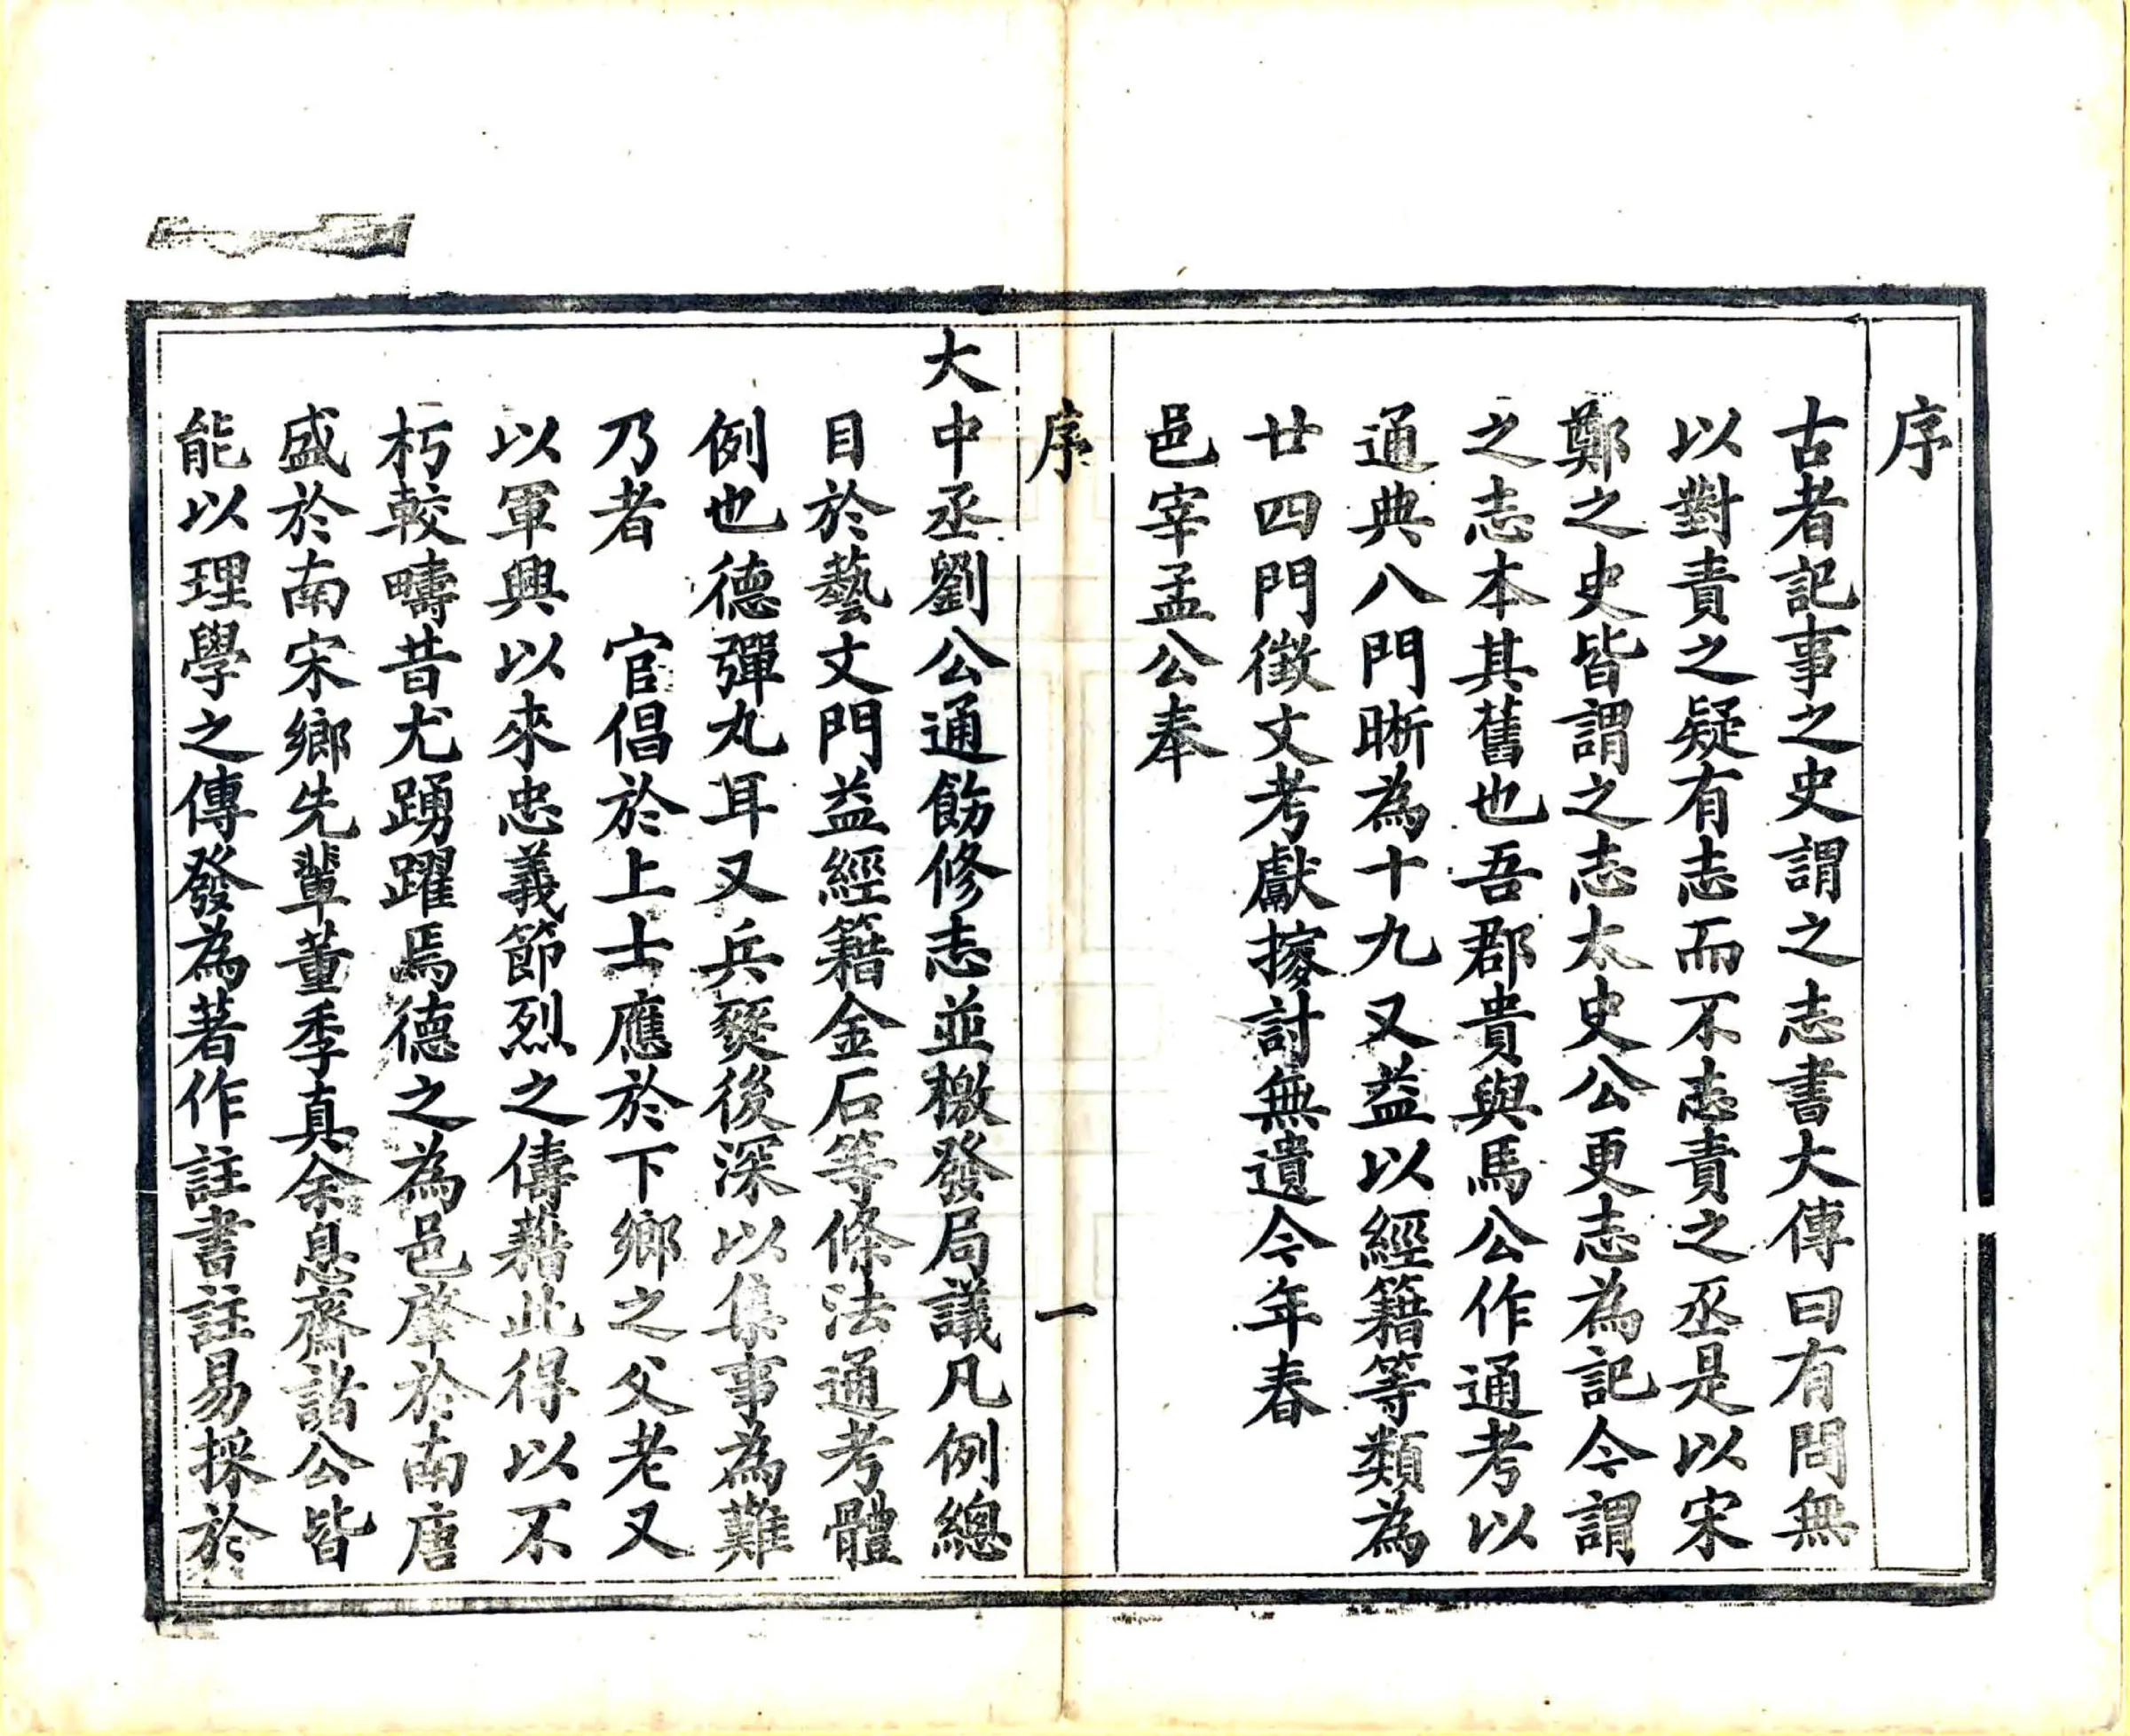 序
古者記事之史謂之志書大傳曰有問無
以對責之疑有志而不志責之丞是以宋
鄭之史皆謂之志太史公更志為記今謂
之志本其舊也吾郡貴與馬公作通考以
通典八門晰為十九又益以經籍等類為
廿四門徵文考獻摉討無遺今年春
邑宰孟公奉
序
一
大中丞劉公通飭修志並檄發局議凡例總
目於藝文門益經籍金石等條法通考體
例也德彈丸耳又兵燹後深以集事為難
乃者 官倡於上士應於下鄉之父老又
以軍興以來忠義節烈之儔藉此得以不
朽較疇昔尤踴躍焉德之為邑肇於南唐
盛於南宋鄉先輩董季真余息齋諸公皆
能以理學之傳發為著作註書註易採於